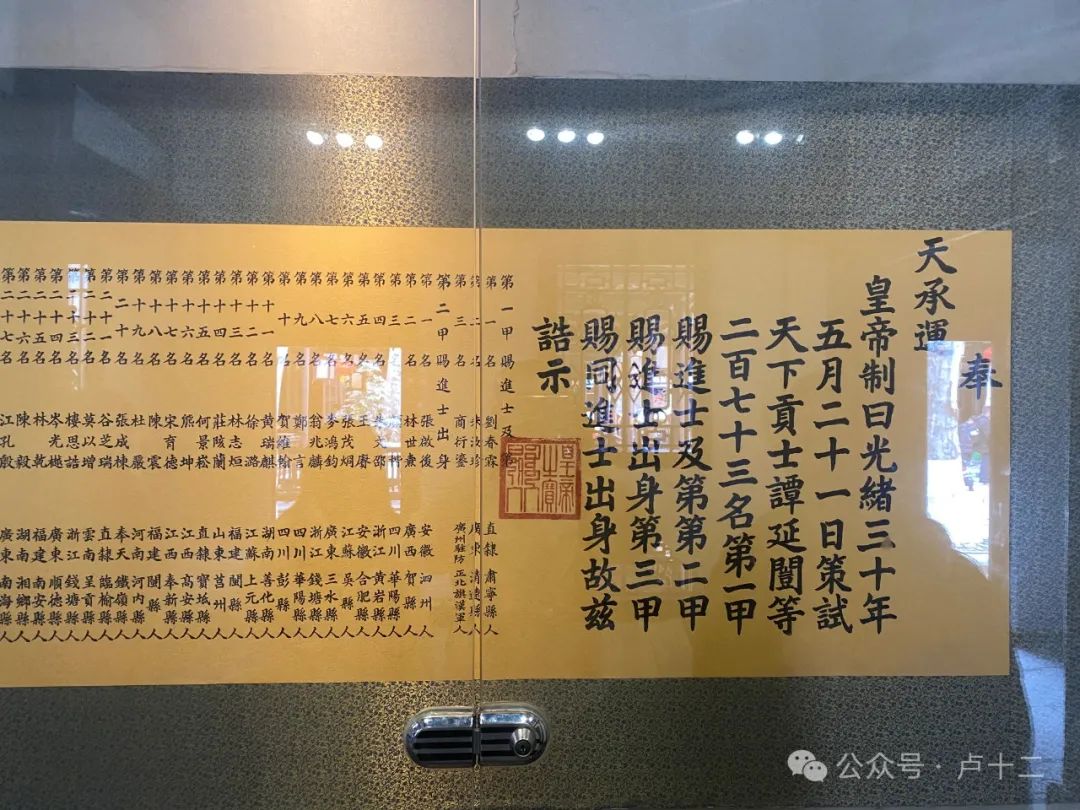 奉
天承運
皇帝制曰光緒三十年
五月二十一日策試
天下貢士譚延闓等
二百七十三名第一甲
賜進士及第第二甲
賜進士出身第三甲
賜同進士出身故茲
誥示
皇帝之寶
第一甲賜進士及第
第一名 劉春霖 直隸肅寧縣人
第二名 朱汝珍 廣東清遠縣人
第三名 商衍鎏 廣州駐防正旗漢軍人
第二甲賜進士出身
第一名 張啟後 安徽泗州人
第二名 林世燾 廣西賀縣人
第三名 四川華陽縣人
第四名 朱文劭 浙江黃岩縣人
第五名 王賡 安徽合肥縣人
第六名 張茂炯 江蘇吳縣人
第七名 麥鴻鈞 廣東三水縣人
第八名 翁兆麟 浙江錢塘縣人
第九名 鄭言 四川華陽縣人
第十名 賀維翰 四川彭縣人
第十一名 黃瑞麒 湖南善化縣人
第十二名 徐潞 江蘇上元縣人
第十三名 林志烜 福建閩縣人
第十四名 莊陔蘭 山東莒州人
第十五名 何景崧 直隸寶坻縣人
第十六名 熊坤 江西高安縣人
第十七名 宋育德 江西奉新縣人
第十八名 陳雲 福建閩縣人
第十九名 杜嚴 河南河內縣人
第二十名 張成棟 奉天鐵嶺縣人
第二十一名 谷芝瑞 直隸臨榆縣人
第二十二名 莫以增 雲南呈貢縣人
第二十三名 樓思誥 浙江錢塘縣人
第二十四名 岑光樾 廣東順德縣人
第二十五名 林乾 福建南安縣人
第二十六名 陳毅 湖南湘鄉縣人
第二十七名 江孔殷 廣東南海縣人
公众号·卢十二